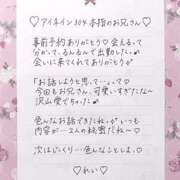 ♡アイネイン104 本指のお兄さん♡
事前予約ありがとう♡会えるって
分かって、るんるんで出勤したし🎶
会いに来てくれてありがとう♡
「お話しようと思って…」って♡
今回もお兄さん、可愛いすぎたな〜
沢山愛でちゃった
♡色んなお話できたねぃがいっても
内容が…2人の桃蜜だねっ♡
次はじっくり…色んなことしよ。♡
♡れい♡